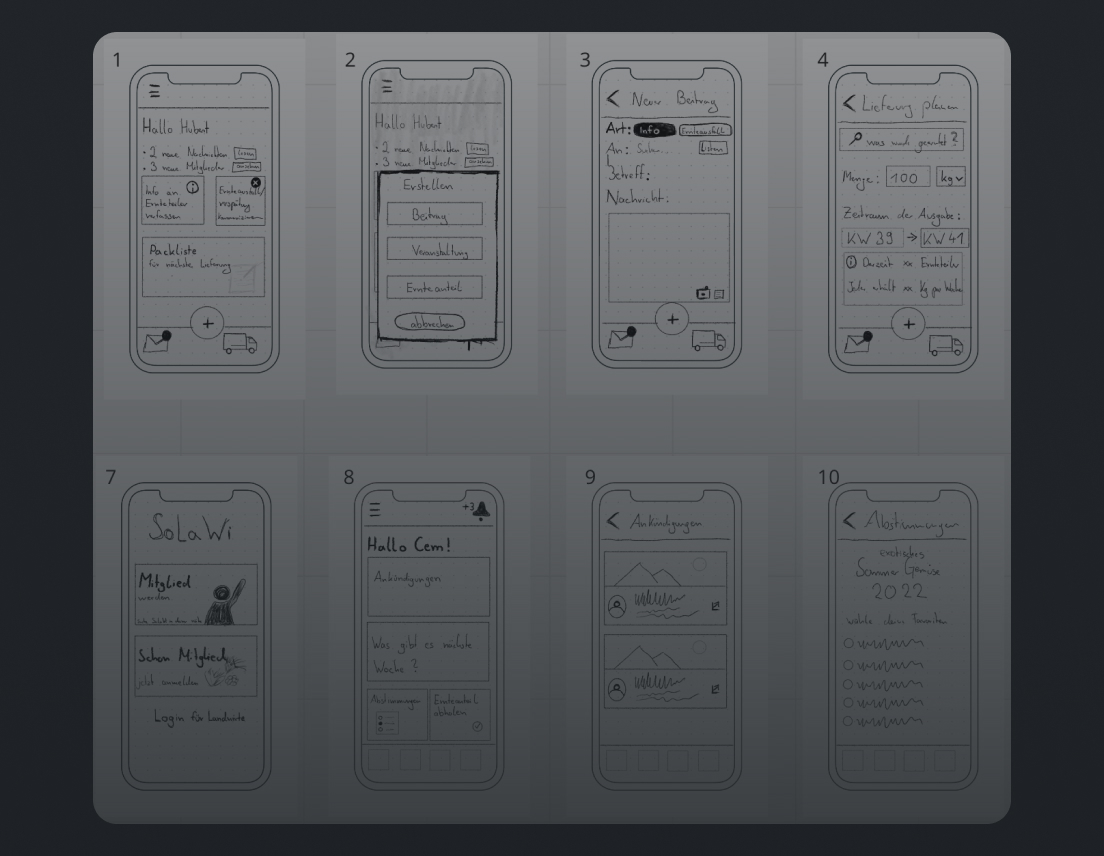 1
Hallo Hubert
• 2 neue Nachrichten Lesen
• 3 neue Mitglieder
Info an
Ernteteiler
verfassen
Ernteanteil
verspätung
kommunizieren
Packliste
für nächste Lieferung
+
2
Hallo Hubert
• 2 neue Nachrichten Lesen
• 3 neue Mitglieder
Erstellen
Beitrag
Veranstaltung
Ernteanteil
abbrechen
3
< Neuer Beitrag
Art: Info Ernteanteil
An: Listen
Betreff:
Nachricht:
+
4
< Lieferung planen
was wird geerntet?
Menge: 100 kg
Zeitraum der Ausgabe:
KW 39 → KW 41
Derzeit xx Ernteteiler
Jede erhält xx Kg pro Woche
+
7
SoLaWi
Mitglied
werden
Schon Mitglied
jetzt anmelden
Login für Landwirte
8
+3
Hallo Cem!
Ankündigungen
Was gibt es nächste
Woche ?
Abstimmungen
Ernteanteil
abholen
9
< Ankündigungen
10
< Abstimmungen
exotisches
Sommer Gemüse
2022
wähle dein Favoriten